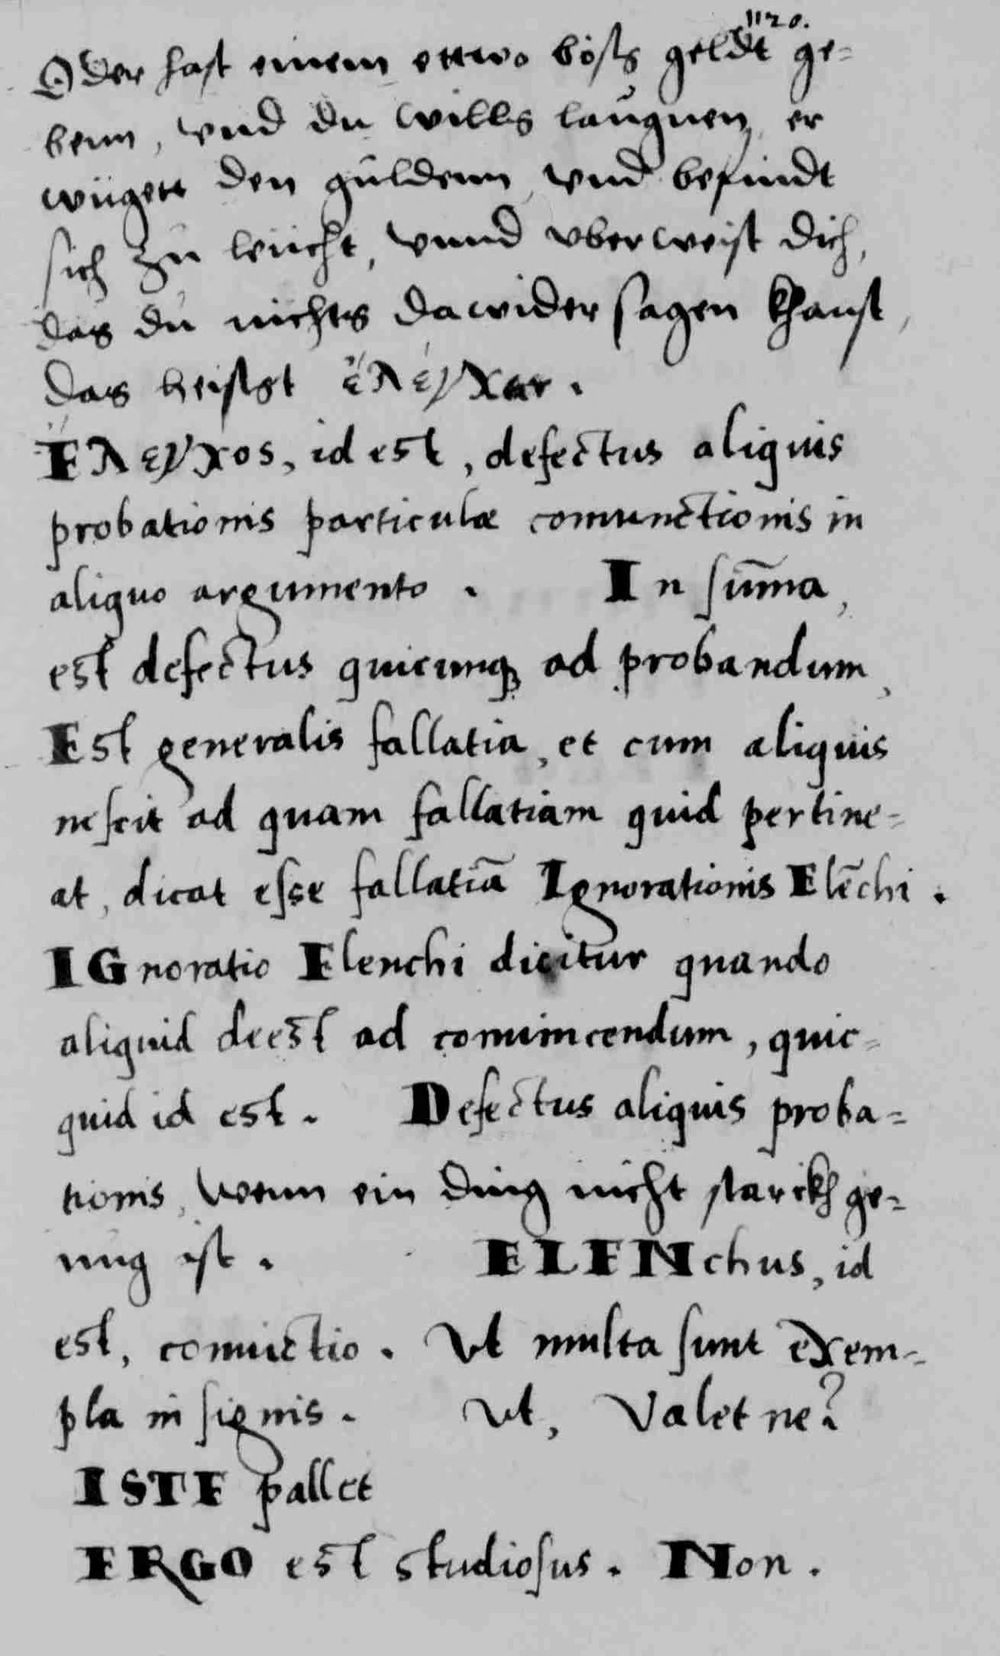 1120.
Oder hast einem ettwo bößs geldt ge-
benn, vnd du wills laugnen, er
wügett den guldenn vnd befindt
sich zu leücht, vnnd vberweist dich,
das du nichts dawider sagen khanst,
das heisst ἐλεγχειν.
Ελεγχος, id est, defectus aliquis
probationis particulæ conuinctionis in
aliquo argumento. In sum̄a,
est defectus quicunq; ad probandum,
Est generalis fallatia, et cum aliquis
nescit ad quam fallatiam quid pertine-
at, dicat esse fallatiā Ignorationis Elēchi.
IGnoratio Elenchi dicitur quando
aliquid deest ad conuincendum, quic-
quid id est. Defectus aliquis proba-
tionis, wenn ein ding nicht starckh ge-
nug ist. ELENchus, id
est, conuictio. Vt multa sunt exem-
pla in signis. Vt, Valet ne?
ISTE pallet
ERGO est studiosus. Non.